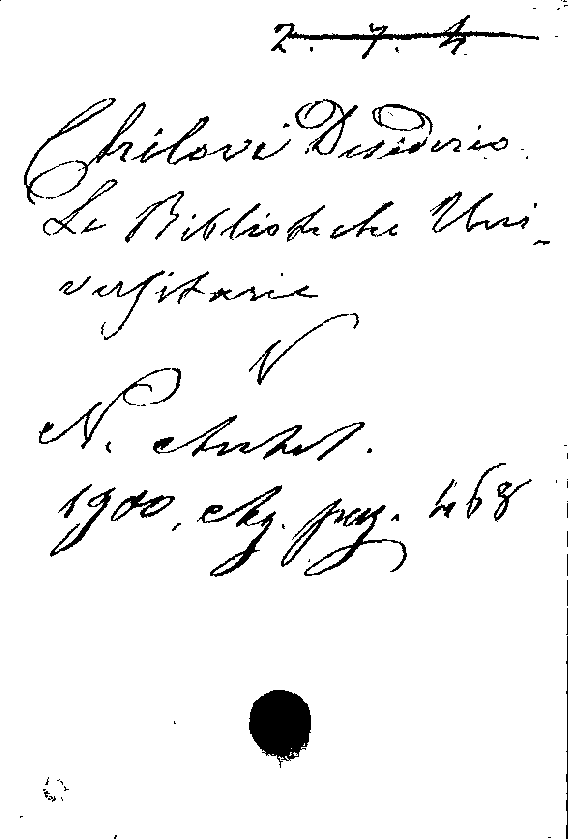 2. 7. 4
Chilovi Desiderio.
Le Biblioteche Uni-
versitarie
V
N. Antol.
1900, Ag. pag. 468